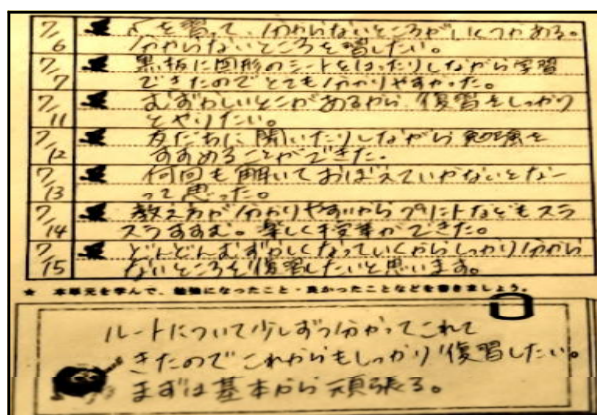 7/6 √を習って、分からないところがいくつかある。
分からないところを習したい。
7/7 黒板に図形のシートをはったりしながら学習
できたのでとても分かりやすかった。
7/11 むずかしいとこがあるから、復習をしっかり
とやりたい。
7/12 友だちに聞いたりしながら勉強を
すすめることができた。
7/13 何回も解いておぼえていかないとなー
って思った。
7/14 教え方が分かりやすいからプリントなどもスラ
スラすすむ。楽しく授業ができた。
7/15 どんどんむずかしくなっていくからしっかり分から
ないところを復習したいと思います。
★ 本単元を学んで、勉強になったこと・良かったことなどを書きましょう。
ルートについて少しずつ分かってこれて
きたのでこれからもしっかり復習したい。
まずは基本から頑張る。